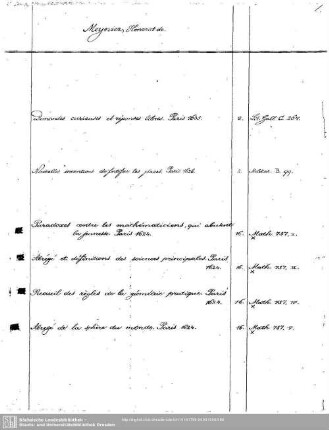 Meynier, Honorat de.
Demandes curieuses et réponses libres. Paris 1635. 8. Lit. Gall. A. 208.
Nouvelles inventions de fortifier les places. Paris 1626 2. Milit. B. 99.
Paradoxes contre les mathématiciens, qui abusent
la jeunesse. Paris 1624. 16. Math. 757, 2.
Abrégé et définitions des sciences principales. Paris
1624. 16. Math. 757,
Recueil des règles de la géométrie pratique. Paris
1624. 16. Math. 757,
Abrégé de la sphère du monde. Paris 1624. 16. Math. 757,
SLUB
Sächsische Landesbibliothek -
Staats- und Universitätsbibliothek Dresden